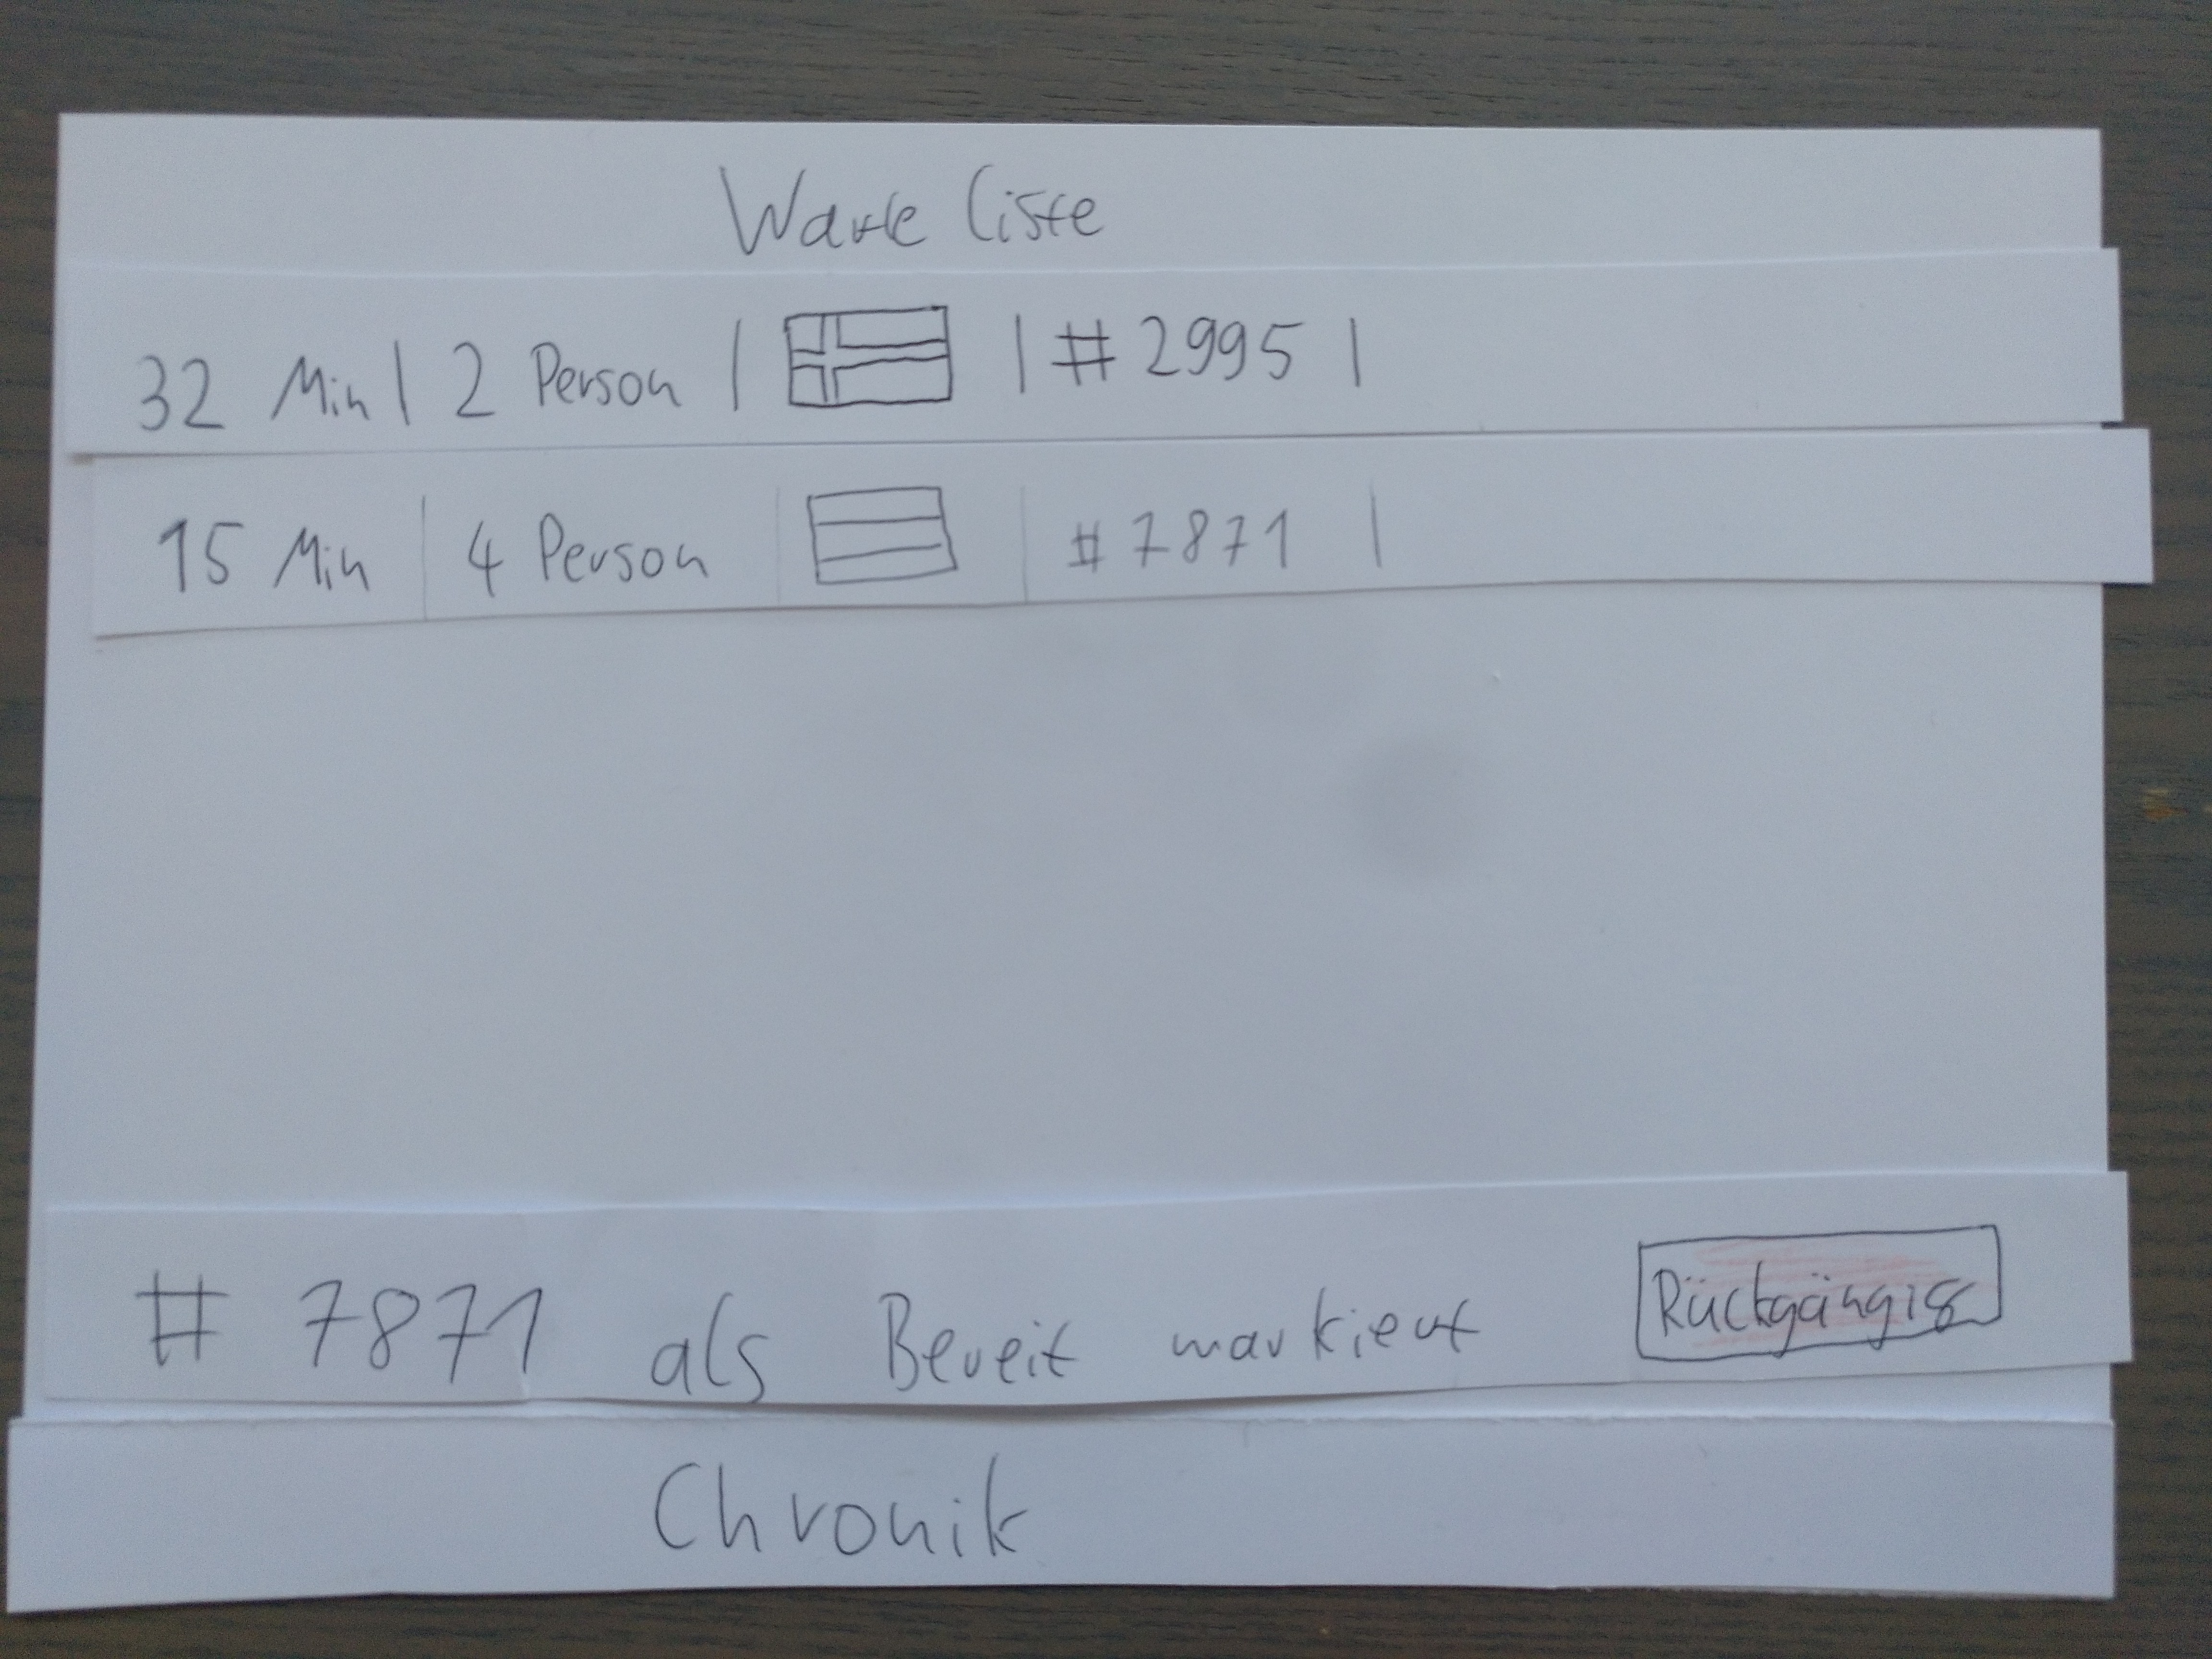 Warteliste
32 Min | 2 Person | | #2995 |
15 Min | 4 Person | | #7871 |
# 7871 als Bereit markiert Rückgängig
Chronik